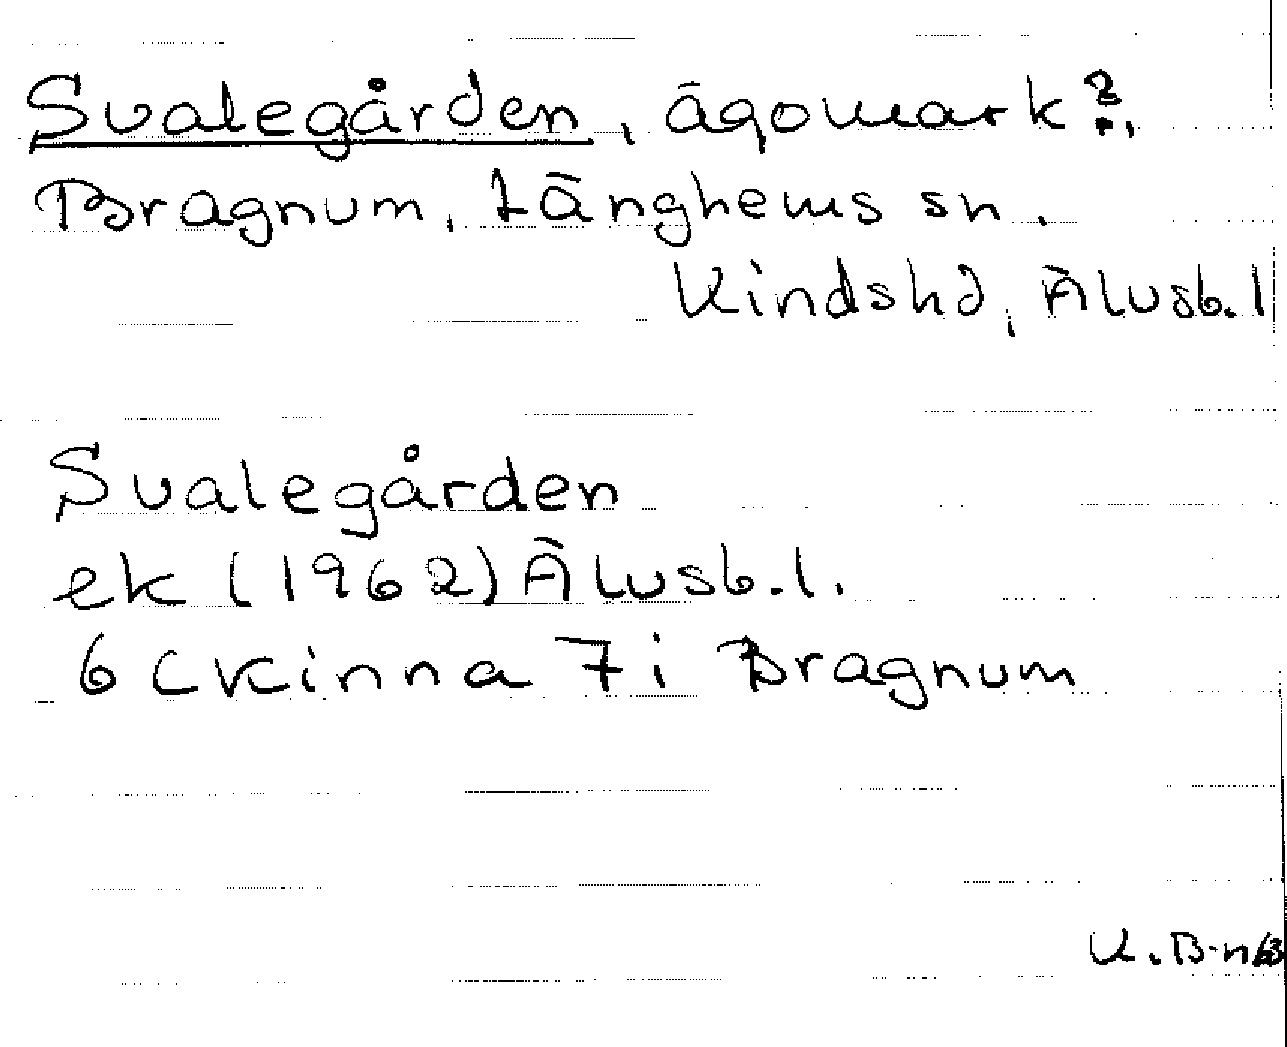 Svalegården, ägomark?,
Bragnum, Länghems sn.
Kindshd, Älvsb. l
Svalegården
ek (1962) Älvsb. l.
6 C Kinna 7 i Bragnum
K. B-n